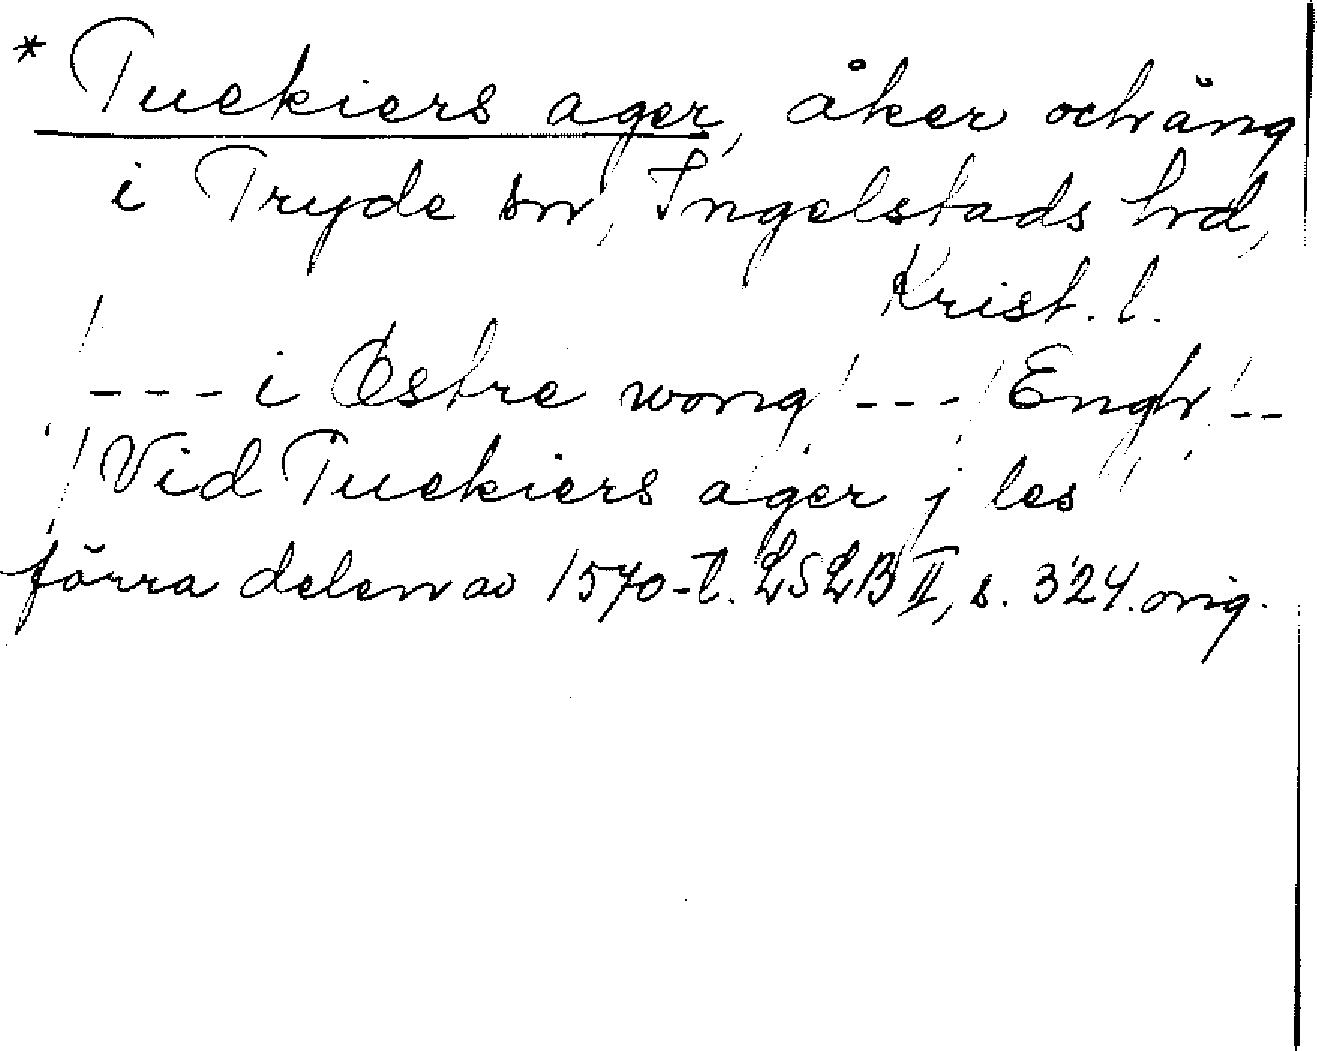 * Tuekiers ager, åker och äng
i Tryde sn, Ingelstads hd,
Krist. l.
/--- i Østre wong/ ---/ Engh/ --
/Vid Tuekiers ager j les
förra delen av 1570-t. LSLB II, s. 324. orig.